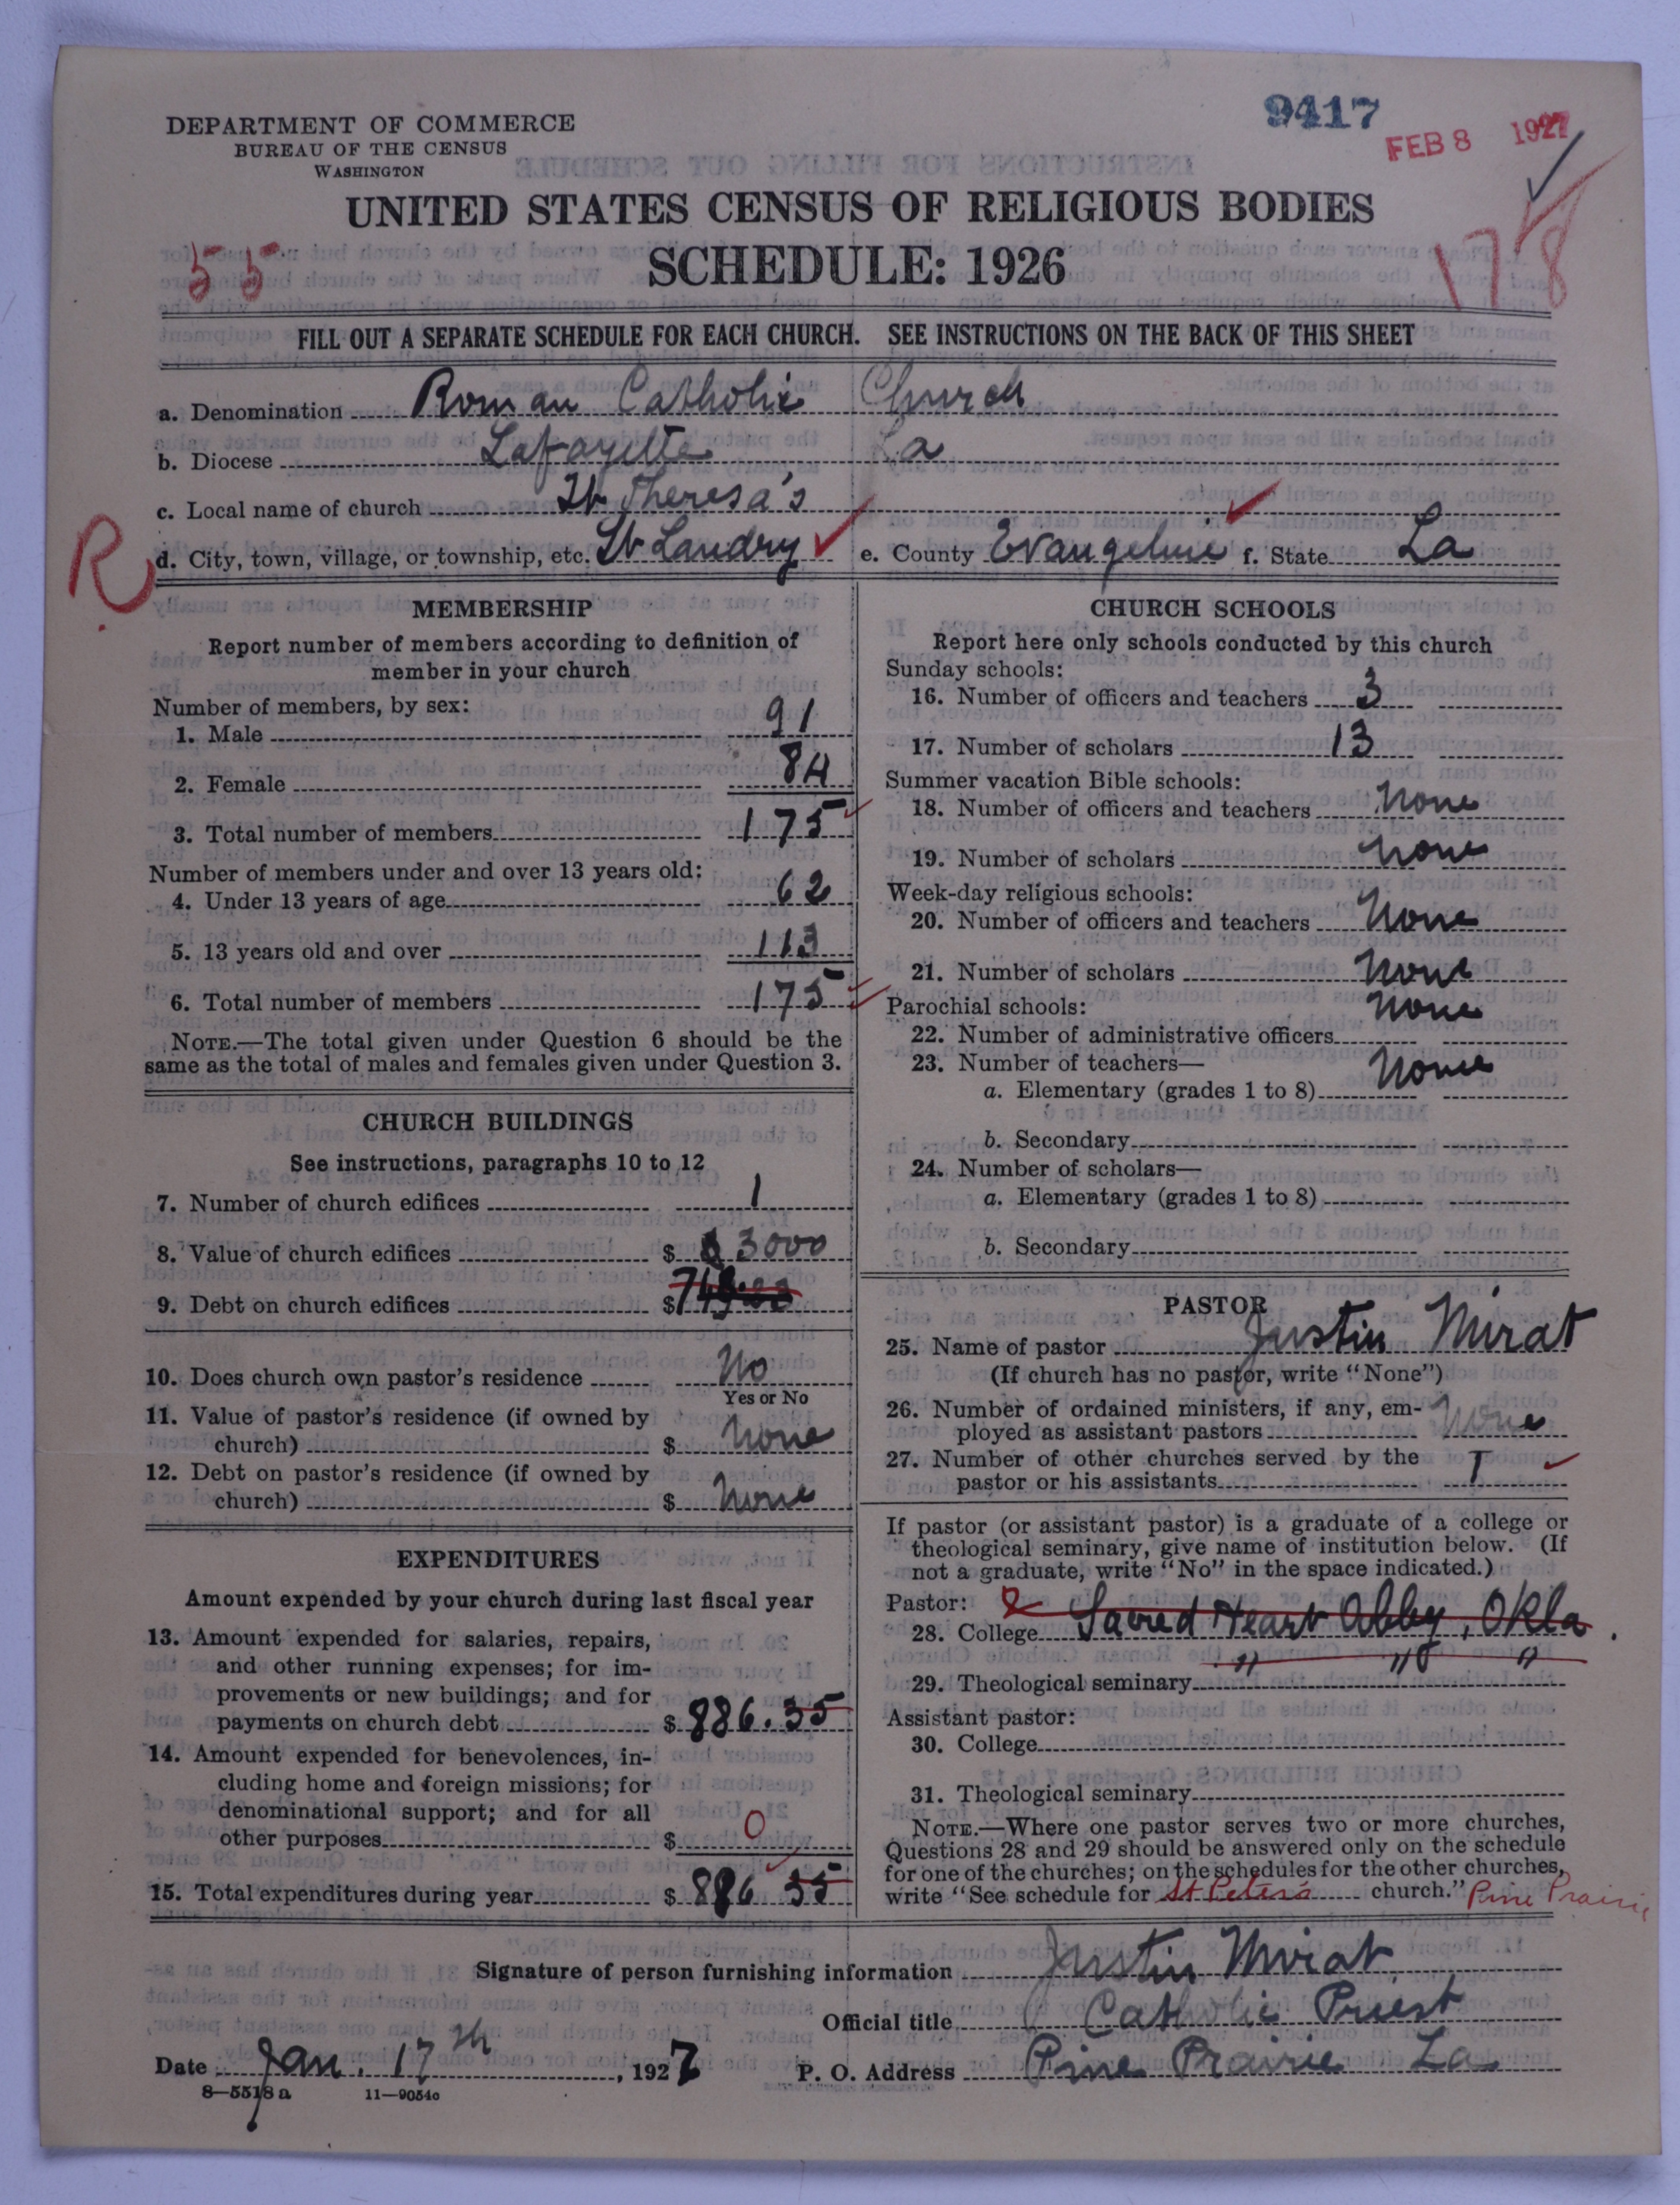 9417
FEB 8 1927
DEPARTMENT OF COMMERCE
BUREAU OF THE CENSUS
WASHINGTON
UNITED STATES CENSUS OF RELIGIOUS BODIES
SCHEDULE: 1926
55
178
FILL OUT A SEPARATE SCHEDULE FOR EACH CHURCH. SEE INSTRUCTIONS ON THE BACK OF THIS SHEET
a. Denomination Roman Catholic Church
b. Diocese Lafayette La
c. Local name of church St Theresa's
R
d. City, town, village, or township, etc. St Landry e. County Evangeline f. State La
MEMBERSHIP
Report number of members according to definition of
member in your church
Number of members, by sex:
1. Male 91
2. Female 84
3. Total number of members 175
Number of members under and over 13 years old:
4. Under 13 years of age 62
5. 13 years old and over 113
6. Total number of members 175
NOTE.—The total given under Question 6 should be the
same as the total of males and females given under Question 3.
CHURCH BUILDINGS
See instructions, paragraphs 10 to 12
7. Number of church edifices 1
8. Value of church edifices $ 3000
9. Debt on church edifices $
10. Does church own pastor's residence No
Yes or No
11. Value of pastor's residence (if owned by
church) $ None
12. Debt on pastor's residence (if owned by
church) $ None
EXPENDITURES
Amount expended by your church during last fiscal year
13. Amount expended for salaries, repairs,
and other running expenses; for im-
provements or new buildings; and for
payments on church debt $ 886.35
14. Amount expended for benevolences, in-
cluding home and foreign missions; for
denominational support; and for all
other purposes $ 0
15. Total expenditures during year $ 886 35
CHURCH SCHOOLS
Report here only schools conducted by this church
Sunday schools:
16. Number of officers and teachers 3
17. Number of scholars 13
Summer vacation Bible schools:
18. Number of officers and teachers None
19. Number of scholars None
Week-day religious schools:
20. Number of officers and teachers None
21. Number of scholars None
Parochial schools: None
22. Number of administrative officers
23. Number of teachers— None
a. Elementary (grades 1 to 8)
b. Secondary
24. Number of scholars—
a. Elementary (grades 1 to 8)
b. Secondary
PASTOR
25. Name of pastor Justin Mirat
(If church has no pastor, write "None")
26. Number of ordained ministers, if any, em-
ployed as assistant pastors None
27. Number of other churches served by the
pastor or his assistants 1
If pastor (or assistant pastor) is a graduate of a college or
theological seminary, give name of institution below. (If
not a graduate, write "No" in the space indicated.)
Pastor:
28. College Sacred Heart Abby, Okla.
29. Theological seminary " " "
Assistant pastor:
30. College
31. Theological seminary
NOTE.—Where one pastor serves two or more churches,
Questions 28 and 29 should be answered only on the schedule
for one of the churches; on the schedules for the other churches,
write "See schedule for St Peter's church." Pine Prairie
Signature of person furnishing information Justin Mirat
Official title Catholic Priest
Date Jan. 17th, 1927 P. O. Address Pine Prairie La
8—5518 a 11—9054c